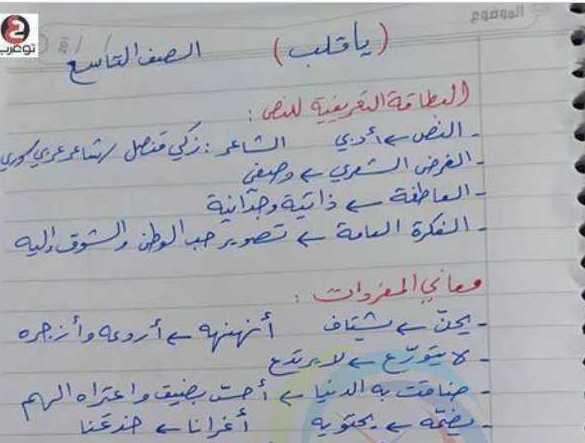 الموضوع
توعرب
(يا قلب) الصف التاسع
البطاقة التعريفية للنص:
- النص ← أدبي الشاعر: زكي قنصل / شاعر عربي سوري
- الغرض الشعري ← وصفي
- العاطفة ← ذاتية وجدانية
- الفكرة العامة ← تصوير حب الوطن والشوق إليه
معاني المفردات:
- يحنّ ← يشتاق أنهنهه ← أردعه وأزجره
- لا يتورّع ← لا يرتدع
- ضاقت به الدنيا ← أحسّ بضيق واعتراه الهم
- يضمّه ← يحتويه أغرانا ← خدعنا